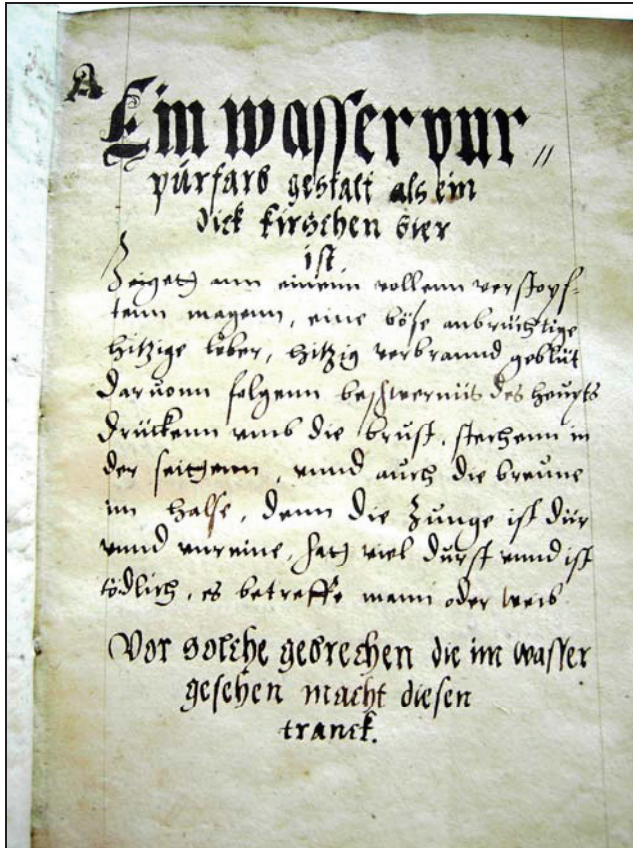 A
Ein wasser pur〃
pürfarb gestalt als ein
dick kirschen bier
ist
Zeigett ann einenn vollenn verstopf=
tenn magenn, eine böse anbrüchtige
hitzige leber, hitzig verbrannd geblüt
daruonn folgenn beschwernüs des heupts
drückenn vmb die brust, stechenn in
der seittenn, vnnd auch die breune
im halse, denn die Zunge ist dür
vnnd vnreine, hatt viel durst vnnd ist
tödlich, es betreffe mann oder weib
Vor solche gebrechen die im wasser
gesehen macht diesen
tranck.